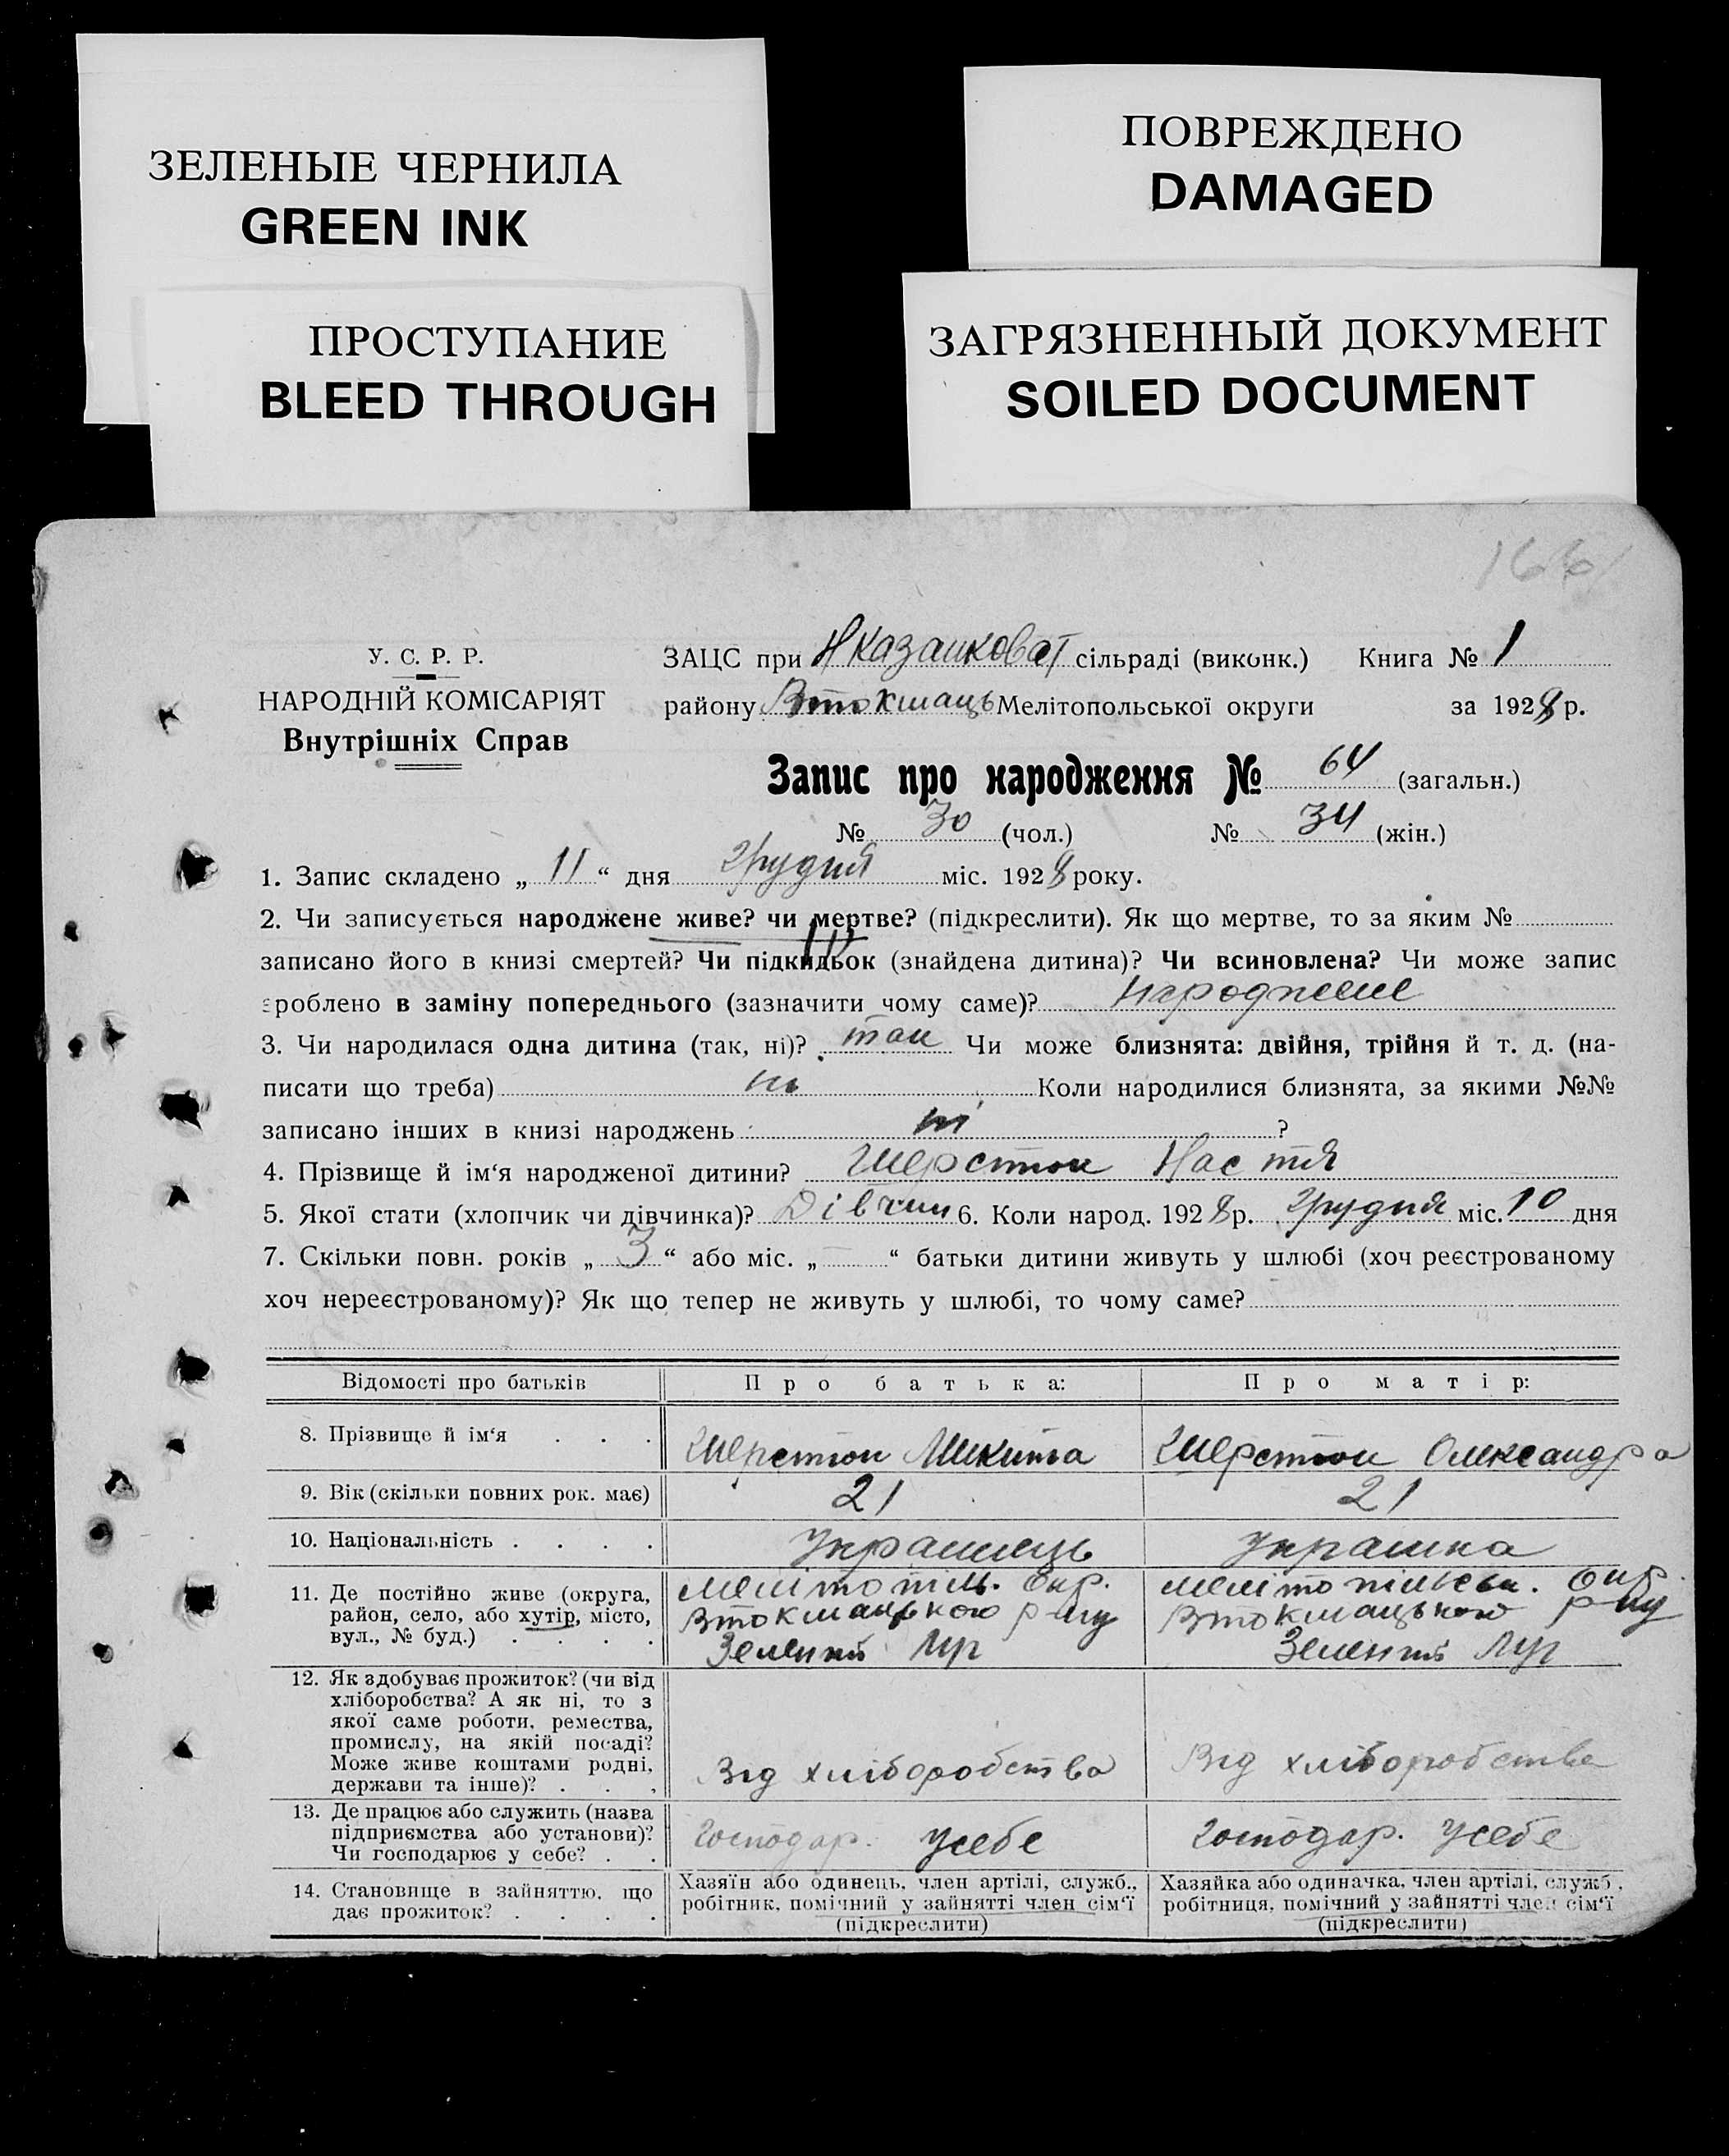 ЗЕЛЕНЫЕ ЧЕРНИЛА
GREEN INK
ПОВРЕЖДЕНО
DAMAGED
ПРОСТУПАНИЕ
BLEED THROUGH
ЗАГРЯЗНЕННЫЙ ДОКУМЕНТ
SOILED DOCUMENT
У. С. Р. Р.
НАРОДНІЙ КОМІСАРІЯТ
Внутрішніх Справ
ЗАЦС при НКазанковат сільраді (виконк.) Книга № 1
району ВтокмацьМелітопольської округи за 1928 р.
Запис про народження № 64 (загальн.)
№ 30 (чол.) № 34 (жін.)
1. Запис складено „ 11 “ дня грудня міс. 1928 року.
2. Чи записується народжене живе? чи мертве? (підкреслити). Як що мертве, то за яким №
записано його в книзі смертей? Чи підкидьок (знайдена дитина)? Чи всиновлена? Чи може запис
зроблено в заміну попереднього (зазначити чому саме)?
3. Чи народилася одна дитина (так, ні)? так Чи може близнята: двійня, трійня й т. д. (на-
писати що треба) ні Коли народилися близнята, за якими №№
записано інших в книзі народжень ні ?
4. Прізвище й ім‘я народженої дитини? Шерстюк Настя
5. Якої стати (хлопчик чи дівчинка)? Дівчин 6. Коли народ. 1928 р. грудня міс. 10 дня
7. Скільки повн. років „ 3 “ або міс. „ — “ батьки дитини живуть у шлюбі (хоч реєстрованому
хоч нереєстрованому)? Як що тепер не живуть у шлюбі, то чому саме?
Відомості про батьків
Про батька:
Про матір:
8. Прізвище й ім‘я . . .
Шерстюк Микита
Шерстюк Олександра
9. Вік (скільки повних рок. має)
21
21
10. Національність . . . .
Українець
Українка
11. Де постійно живе (округа,
район, село, або хутір, місто,
вул., № буд.) . . . .
Мелітопіль. Окр.
Втокмацького р-ну
Зелений Яр
Мелітопільськ. Окр.
Втокмацького р-ну
Зелений Яр
12. Як здобуває прожиток? (чи від
хліборобства? А як ні, то з
якої саме роботи, ремества,
промислу, на якій посаді?
Може живе коштами родні,
держави та інше)? . . .
Від хліборобства
Від хліборобства
13. Де працює або служить (назва
підприємства або установи)?
Чи господарює у себе? . .
Господар. Усебе
Господар. Усебе
14. Становище в зайняттю, що
дає прожиток? . . . .
Хазяїн або одинець, член артілі, служб.,
робітник, помічний у зайнятті член сім‘ї
(підкреслити)
Хазяйка або одиначка, член артілі, служб.,
робітниця, помічний у зайнятті член сім‘ї
(підкреслити)